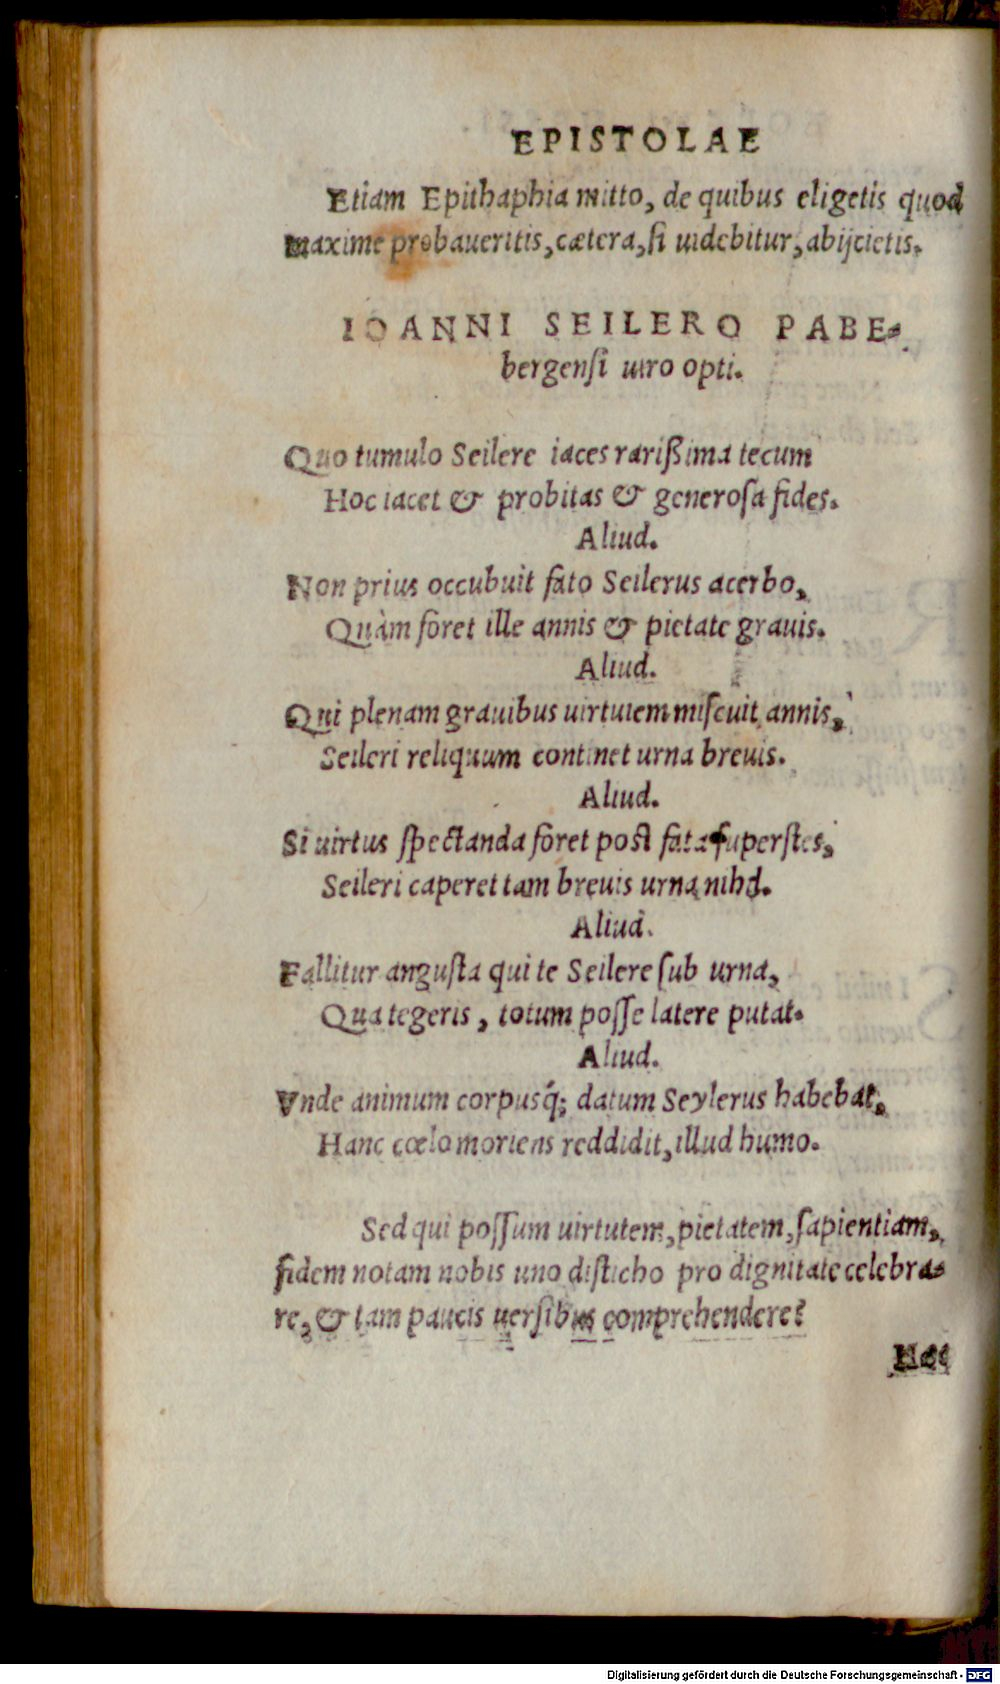 EPISTOLAE
Etiam Epithaphia mitto, de quibus eligetis quod
maxime probaueritis, cætera, ſi uidebitur, abijcietis.
IOANNI SEILERO PABE-
bergenſi uiro opti.
Quo tumulo Seilere iaces rarißima tecum
Hoc iacet & probitas & generoſa fides.
Aliud.
Non prius occubuit fato Seilerus acerbo,
Quàm foret ille annis & pietate grauis.
Aliud.
Qui plenam grauibus uirtutem miſcuit annis,
Seileri reliquum continet urna breuis.
Aliud.
Si uirtus ſpectanda foret poſt fata ſuperſtes,
Seileri caperet tam breuis urna nihil.
Aliud.
Fallitur anguſta qui te Seilere ſub urna,
Qua tegeris, totum poſſe latere putat.
Aliud.
Vnde animum corpusq́; datum Seylerus habebat,
Hanc cœlo moriens reddidit, illud humo.
Sed qui poſſum uirtutem, pietatem, ſapientiam,
fidem notam nobis uno diſticho pro dignitate celebra-
re, & tam paucis uerſibus comprehendere?
Digitalisierung gefördert durch die Deutsche Forschungsgemeinschaft - DFG